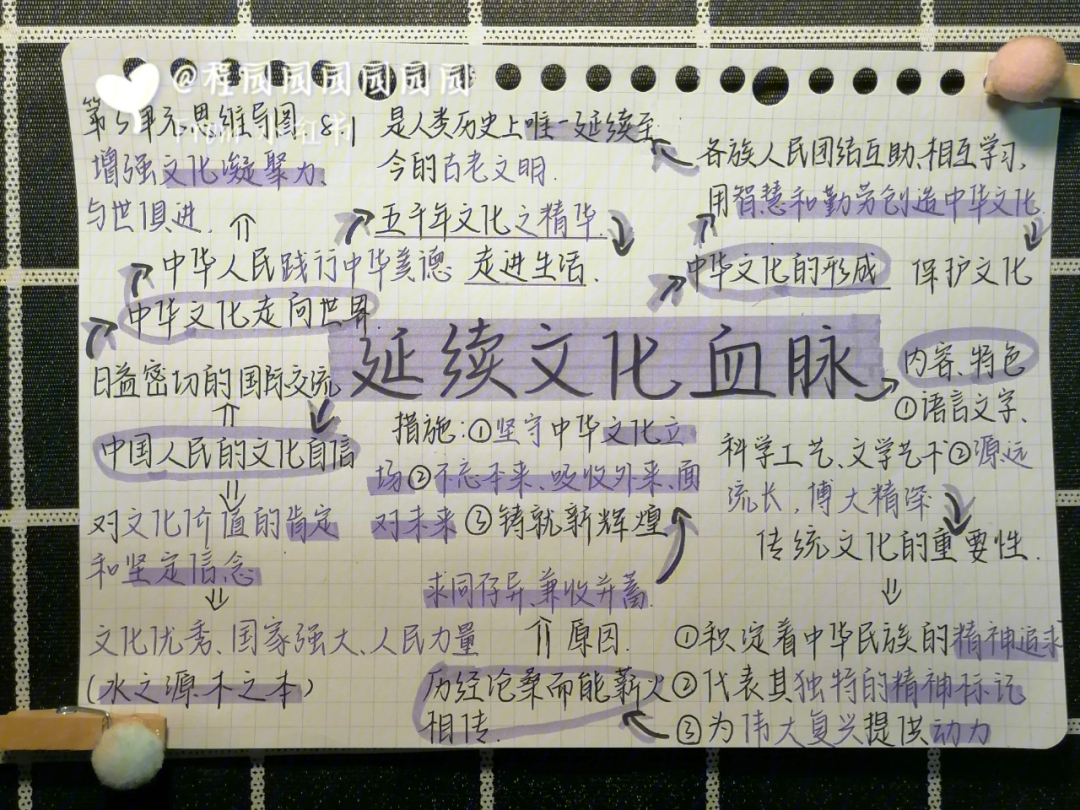 @程园园园园园园
第5单元思维导图 8.1
增强文化凝聚力、
与世俱进.
中华人民践行中华美德
中华文化走向世界
日益密切的国际交流
中国人民的文化自信
对文化价值的肯定
和坚定信念
文化优秀、国家强大、人民力量
(水之源.木之本)
是人类历史上唯一延续至
今的古老文明.
五千年文化之精华.
走进生活.
各族人民团结互助、相互学习,
用智慧和勤劳创造中华文化
中华文化的形成
保护文化
延续文化血脉
内容、特色
①语言文字、
科学工艺、文学艺术②源远
流长,博大精深
传统文化的重要性.
措施:①坚守中华文化立
场②不忘本来、吸收外来、面
对未来③铸就新辉煌
求同存异、兼收并蓄.
原因.
历经沧桑而能薪火
相传.
①积淀着中华民族的精神追求
②代表其独特的精神标记
③为伟大复兴提供动力